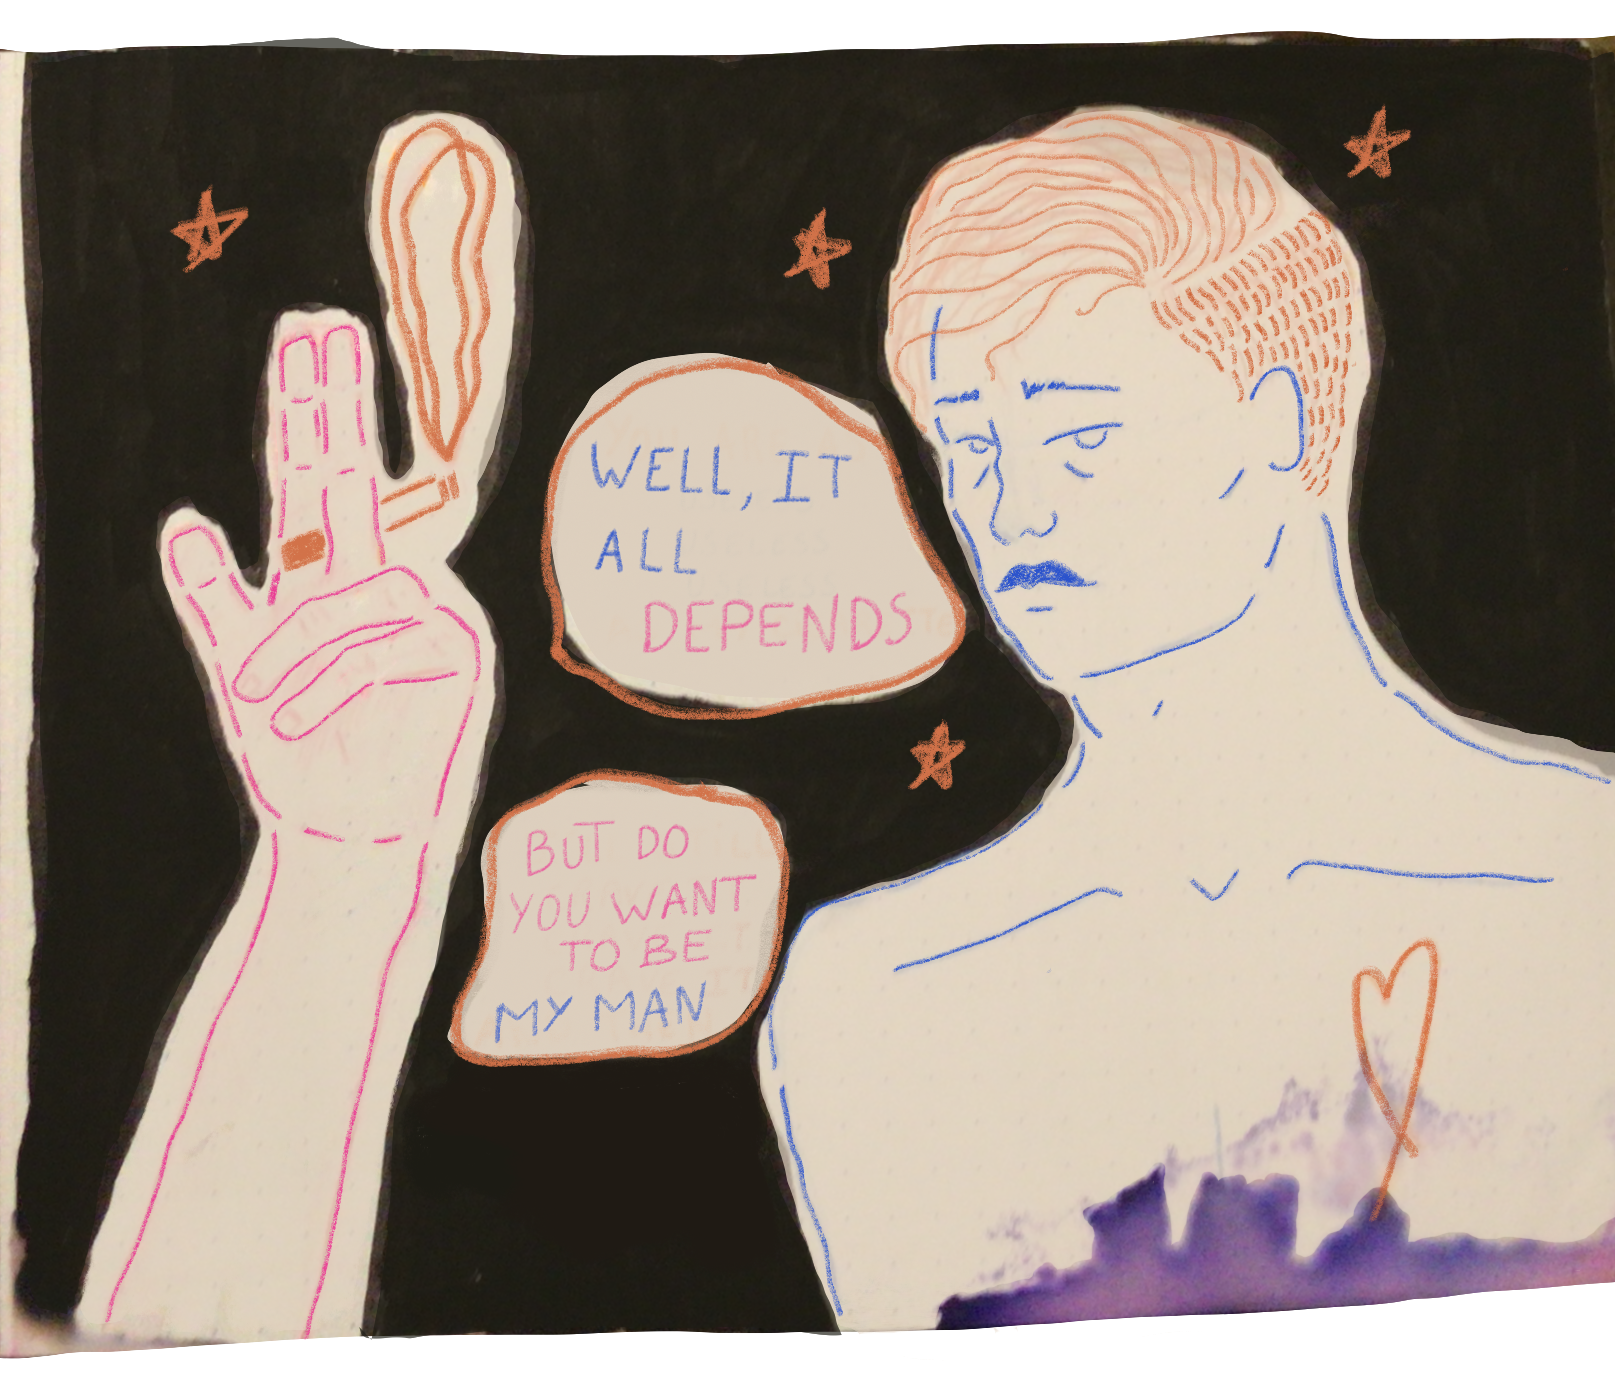 WELL, IT
ALL
DEPENDS
BUT DO
YOU WANT
TO BE
MY MAN